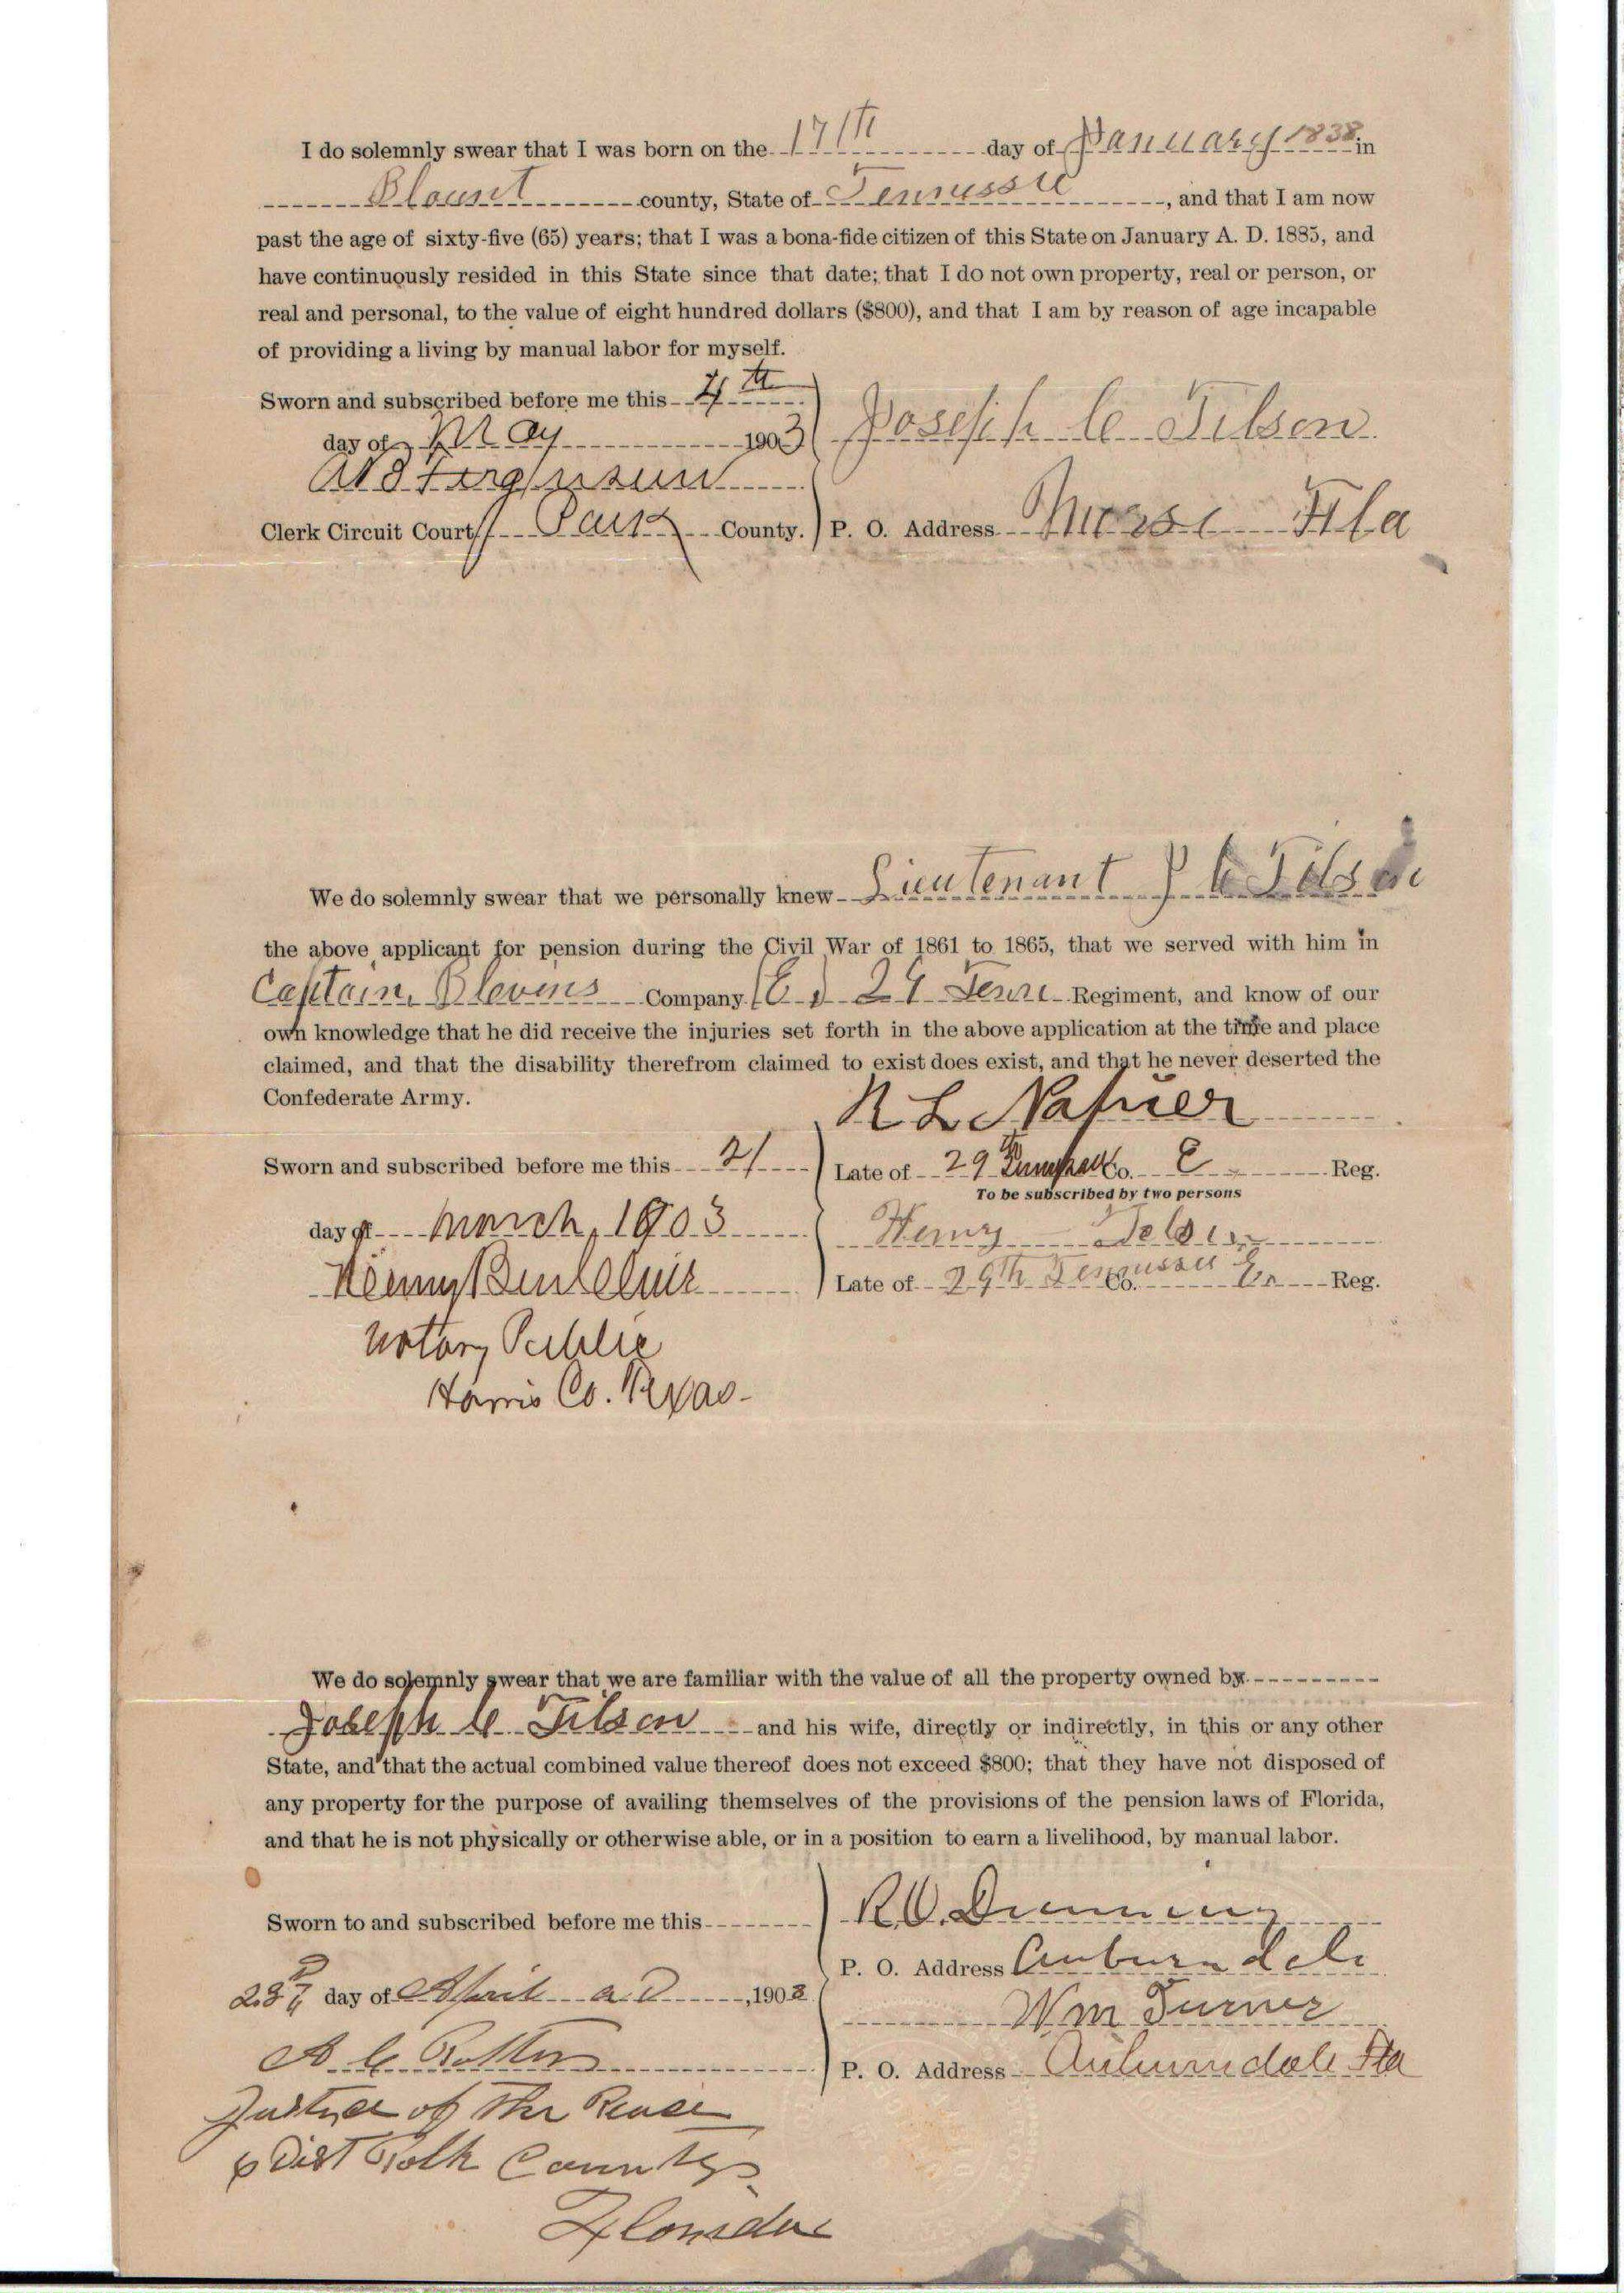 I do solemnly swear that I was born on the 17th day of January 1838 in
Blount county, State of Tennessee, and that I am now
past the age of sixty-five (65) years; that I was a bona-fide citizen of this State on January A. D. 1885, and
have continuously resided in this State since that date; that I do not own property, real or person, or
real and personal, to the value of eight hundred dollars ($800), and that I am by reason of age incapable
of providing a living by manual labor for myself.
Sworn and subscribed before me this 4th
day of May 1903 Joseph C Tilson
Clerk Circuit Court County. P. O. Address Fla
We do solemnly swear that we personally knew Lieutenant J C Tilson
the above applicant for pension during the Civil War of 1861 to 1865, that we served with him in
Captain Blevins Company (E) 29 Tenn Regiment, and know of our
own knowledge that he did receive the injuries set forth in the above application at the time and place
claimed, and that the disability therefrom claimed to exist does exist, and that he never deserted the
Confederate Army.
L Napier
Sworn and subscribed before me this 21 Late of 29 Co. E Reg.
To be subscribed by two persons
day of March, 1903 Henry
Henry Late of 29th Tennessee Co. E Reg.
Notary Public
Harris Co. Texas
We do solemnly swear that we are familiar with the value of all the property owned by
Joseph C Tilson and his wife, directly or indirectly, in this or any other
State, and that the actual combined value thereof does not exceed $800; that they have not disposed of
any property for the purpose of availing themselves of the provisions of the pension laws of Florida,
and that he is not physically or otherwise able, or in a position to earn a livelihood, by manual labor.
Sworn to and subscribed before me this R.O.
P. O. Address Auburndale
28 day of April a D, 1903
Wm Turner
A C P. O. Address Auburndale Fla
Justice of the Peace
6 Dist Polk County
Florida